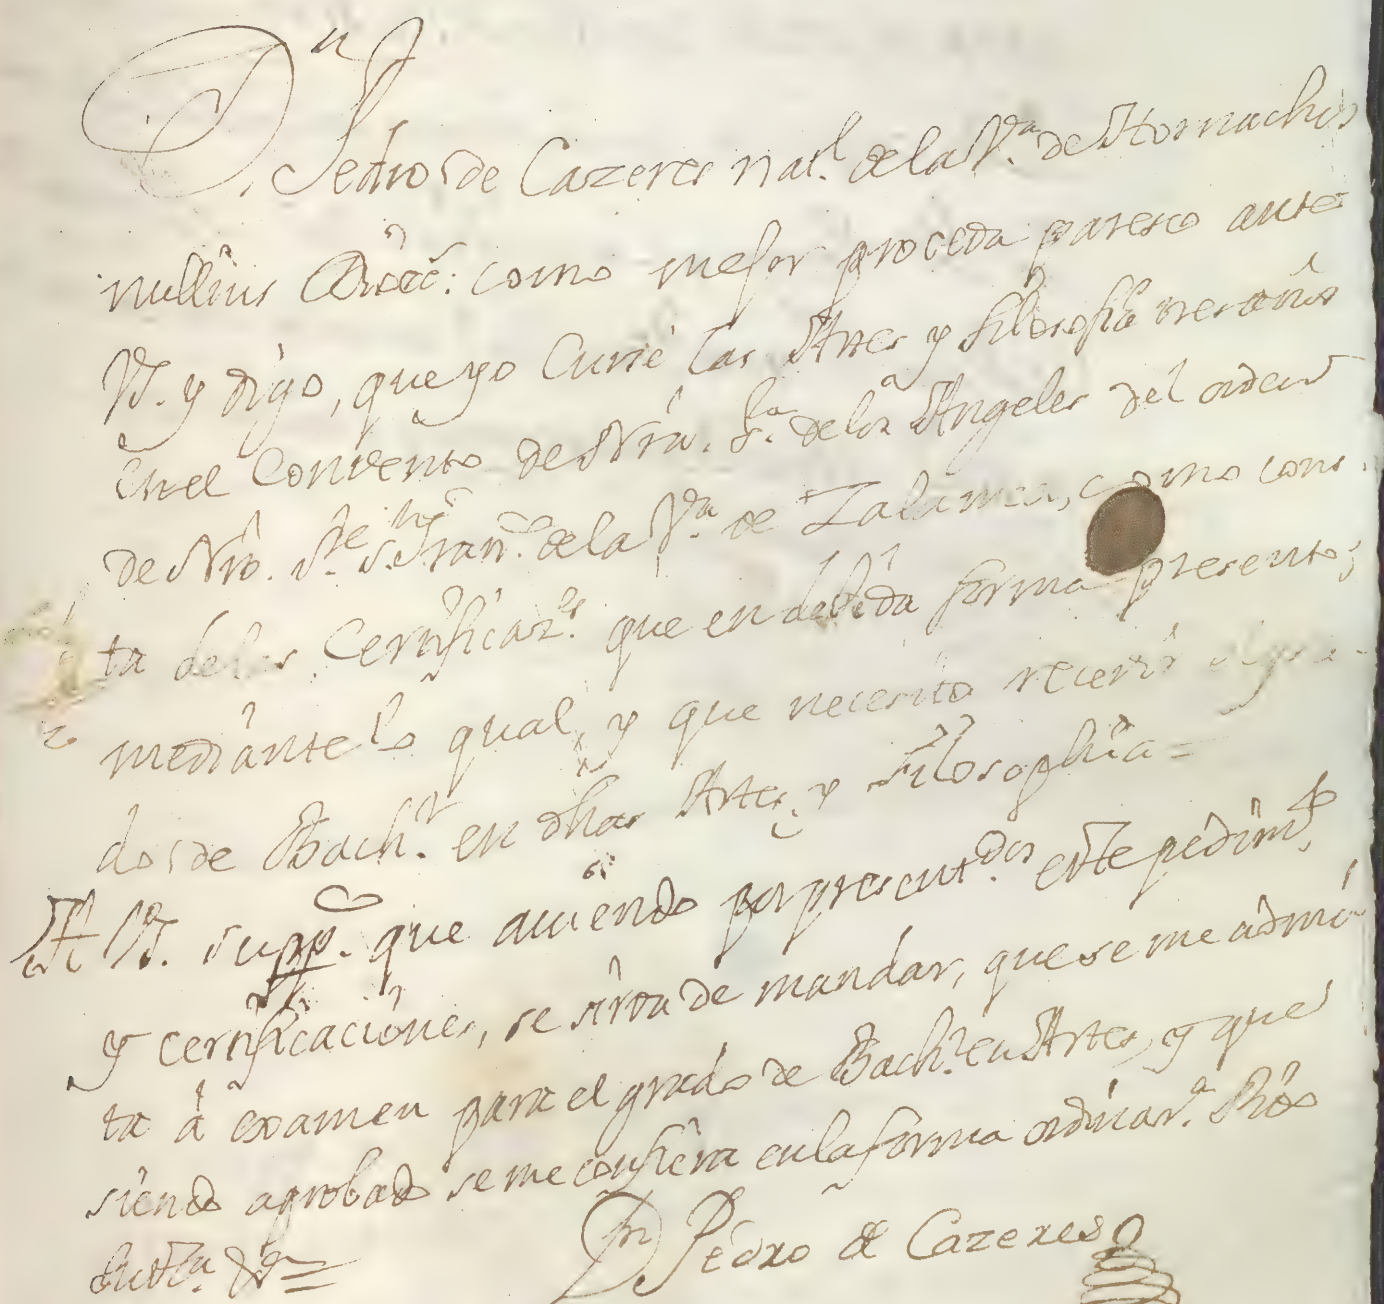 Dn Pedro de Cazeres nat.l de la V.a de Hornachos
nullius Diœcc.: como mejor proceda paresco ante
VS. y digo, que yo Cursé las Artes y filosofia tres años
en el Convento de Nra. S.a de los Angeles del orden
de Nro. P.e S.n Fran.co de la V.a de Zalamea, como cons-
ta de las Certificaz.es que en debida forma presento;
mediante lo qual, y que necesito recevir el gra-
do de Bach.r en dhas Artes, y Filosophia =
A VS. supp.co que aviendo por present.dos este pedim.to
y certificaciones, se sirva de mandar, que se me admi-
ta á examen para el grado de Bach.r en Artes, y que
siendo aprobado se me confiera en la forma ordinar.a Pido
Just.a &.a =
Dn Pedro de Cazeres